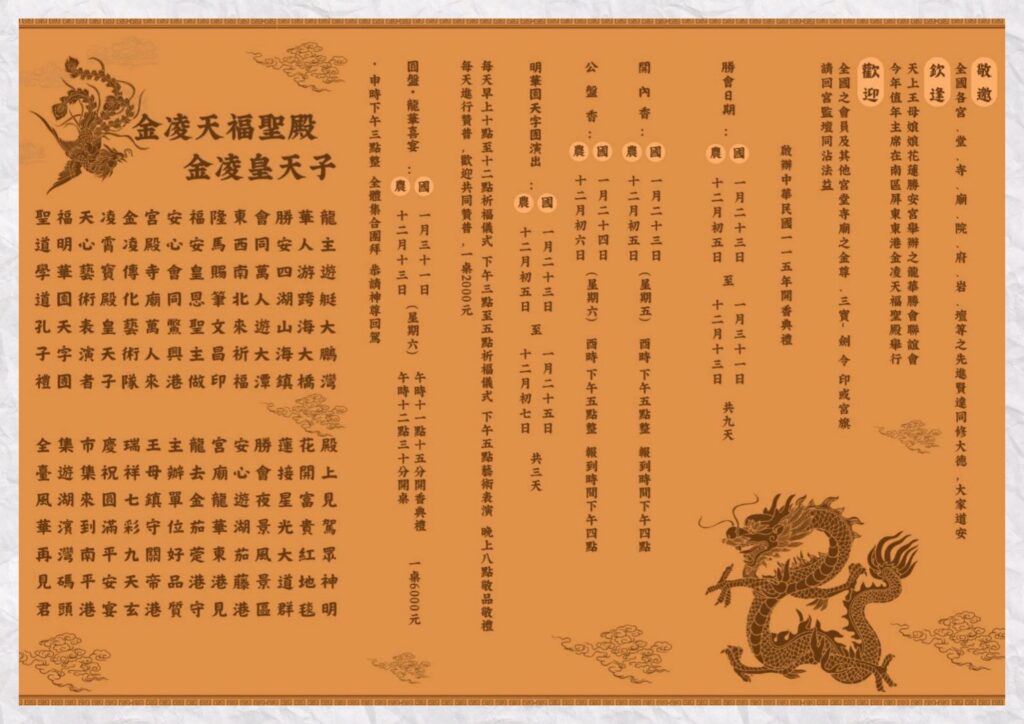 敬邀
全國各宮、堂、寺、廟、院、府、岩、壇等之先進賢達同修大德,大家道安
欽逢
天上王母娘娘花蓮勝安宮舉辦之龍華勝會聯誼會
今年值年主席在南區屏東東港金凌天福聖殿舉行
歡迎
全國之會員及其他宮堂寺廟之金尊、三寶、劍、令、印或宮旗
請回宮監壇同沾法益
啟辦中華民國一一五年開香典禮
勝會日期：
國 一月二十三日 至 一月三十一日
農 十二月初五日 至 十二月十三日 共九天
開內香：
國 一月二十三日
農 十二月初五日 (星期五) 酉時下午五點整 報到時間下午四點
公盤香：
國 一月二十四日
農 十二月初六日 (星期六) 酉時下午五點整 報到時間下午四點
明華園天字團演出：
國 一月二十三日 至 一月二十五日
農 十二月初五日 至 十二月初七日 共三天
每天早上十點至十二點祈福儀式 下午三點至五點祈福儀式 下午五點藝術表演 晚上八點敬品敬禮
每天進行贊普,歡迎共同贊普,一桌2000元
圓盤·龍華喜宴：
國 一月三十一日
農 十二月十三日 (星期六)
午時十一點十五分開香典禮
午時十二點三十分開桌 一桌6000元
·申時下午三點整 全體集合團拜 恭請神尊回駕
金凌天福聖殿
金凌皇天子
龍主遊艇大鵬灣
華人游跨海大橋
勝安四湖山海鎮
會同萬人遊大潭
東西南北來祈福
隆馬賜筆文昌印
福安皇恩聖主做
安心會同鱉興港
宮殿寺廟萬人來
金凌傳化藝術隊
凌霄寶殿皇天子
天心藝術表演者
福明華園天字團
聖道學道孔子禮
殿上見駕眾神明
花開富貴紅地毯
蓮接星光大道群
勝會夜景風景區
安心遊湖茄藤港
宮廟龍華東港見
龍去金茄萣港守
主辦單位好品質
王母鎮守關帝港
瑞祥七彩九天玄
慶祝圓滿平安宴
市集來到南平港
集遊湖濱灣碼頭
全臺風華再見君